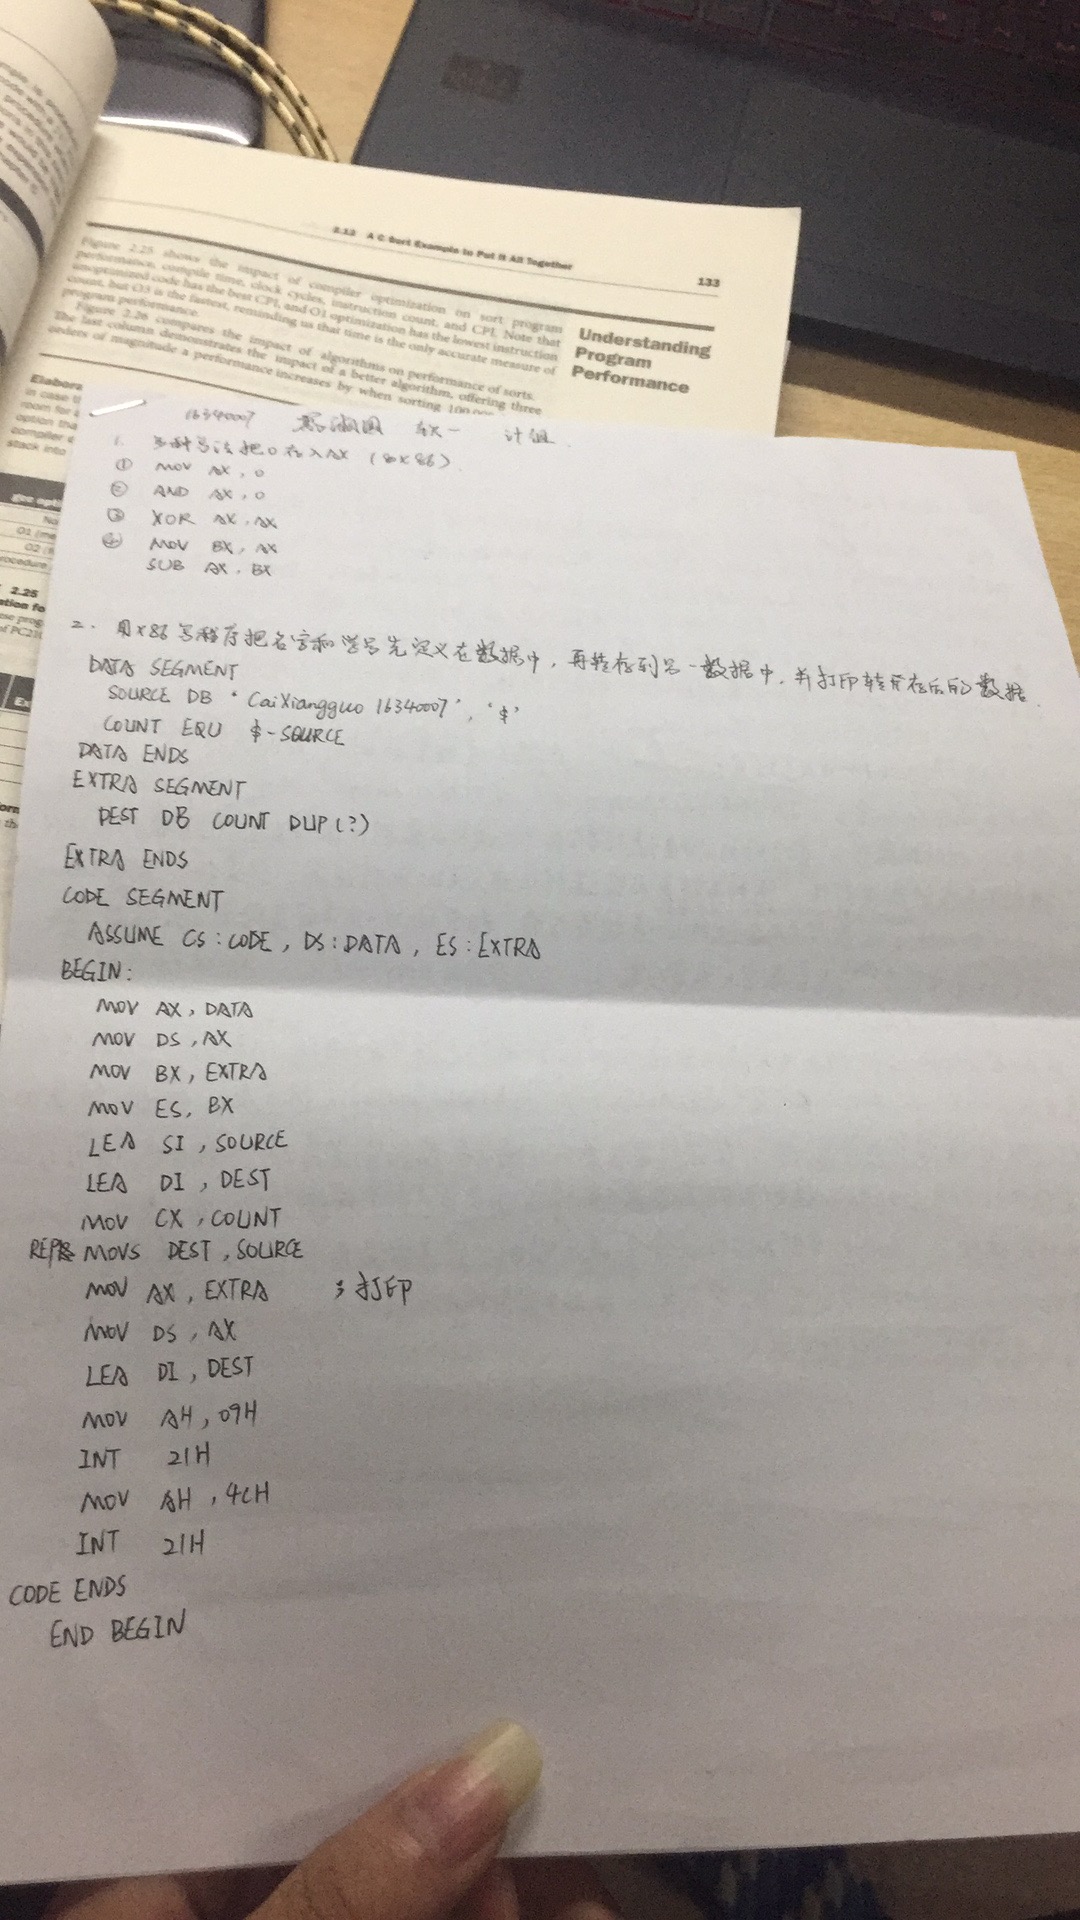 2.13 A C Sort Example to Put It All Together
133
Figure 2.25 shows the impact of compiler optimization on sort program
performance, compile time, clock cycles, instruction count, and CPI. Note that
unoptimized code has the best CPI, and O1 optimization has the lowest instruction
count, but O3 is the fastest, reminding us that time is the only accurate measure of
program performance.
Figure 2.26 compares the impact of algorithms on performance of sorts.
The last column demonstrates the impact of a better algorithm, offering three
orders of magnitude a performance increases by when sorting 100,000
Understanding
Program
Performance
Elabora
in case
room for a
option tha
compiler
stack into
gcc opti
No
O1 (me
O2 (
rocedure
2.25
ation fo
me prog
of PC21
16340007 蔡湘国 软一 计组
1. 多种写法把0存入AX (80x86).
① MOV AX, 0
② AND AX, 0
③ XOR AX, AX
④ MOV BX, AX
SUB AX, BX
2. 用x86写程序把名字和学号先定义在数据中,再转存到另一数据中,并打印转存后的数据.
DATA SEGMENT
SOURCE DB 'CaiXiangguo 16340007', '$'
COUNT EQU $-SOURCE
DATA ENDS
EXTRA SEGMENT
DEST DB COUNT DUP(?)
EXTRA ENDS
CODE SEGMENT
ASSUME CS:CODE, DS:DATA, ES:EXTRA
BEGIN:
MOV AX, DATA
MOV DS, AX
MOV BX, EXTRA
MOV ES, BX
LEA SI, SOURCE
LEA DI, DEST
MOV CX, COUNT
REP MOVS DEST, SOURCE
MOV AX, EXTRA ;打印
MOV DS, AX
LEA DI, DEST
MOV AH, 09H
INT 21H
MOV AH, 4CH
INT 21H
CODE ENDS
END BEGIN